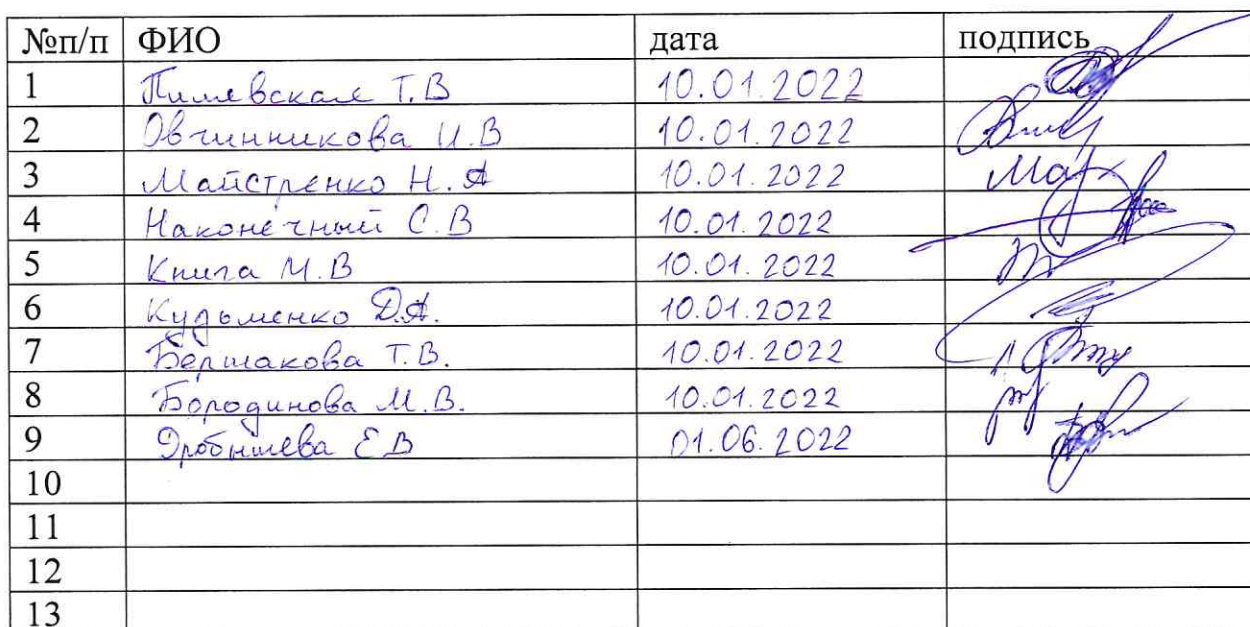 №п/п ФИО дата подпись
1 Пилевская Т.В 10.01.2022
2 Овчинникова И.В 10.01.2022
3 Майстренко Н.А 10.01.2022
4 Наконечный С.В 10.01.2022
5 Книга М.В 10.01.2022
6 Кузьменко Д.А. 10.01.2022
7 Бершакова Т.В. 10.01.2022
8 Бородинова М.В. 10.01.2022
9 Дробышева Е В 01.06.2022
10
11
12
13